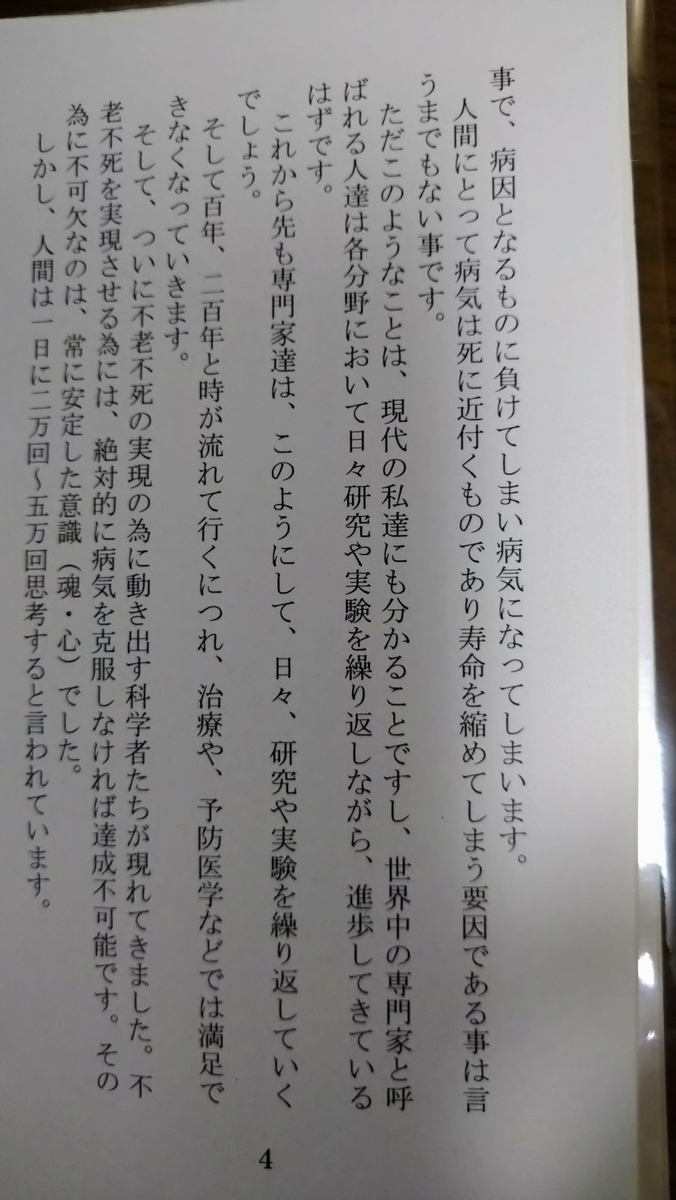 事で、病因となるものに負けてしまい病気になってしまいます。
人間にとって病気は死に近付くものであり寿命を縮めてしまう要因である事は言
うまでもない事です。
ただこのようなことは、現代の私達にも分かることですし、世界中の専門家と呼
ばれる人達は各分野において日々研究や実験を繰り返しながら、進歩してきている
はずです。
これから先も専門家達は、このようにして、日々、研究や実験を繰り返していく
でしょう。
そして百年、二百年と時が流れて行くにつれ、治療や、予防医学などでは満足で
きなくなっていきます。
そして、ついに不老不死の実現の為に動き出す科学者たちが現れてきました。不
老不死を実現させる為には、絶対的に病気を克服しなければ達成不可能です。その
為に不可欠なのは、常に安定した意識（魂・心）でした。
しかし、人間は一日に二万回～五万回思考すると言われています。
4